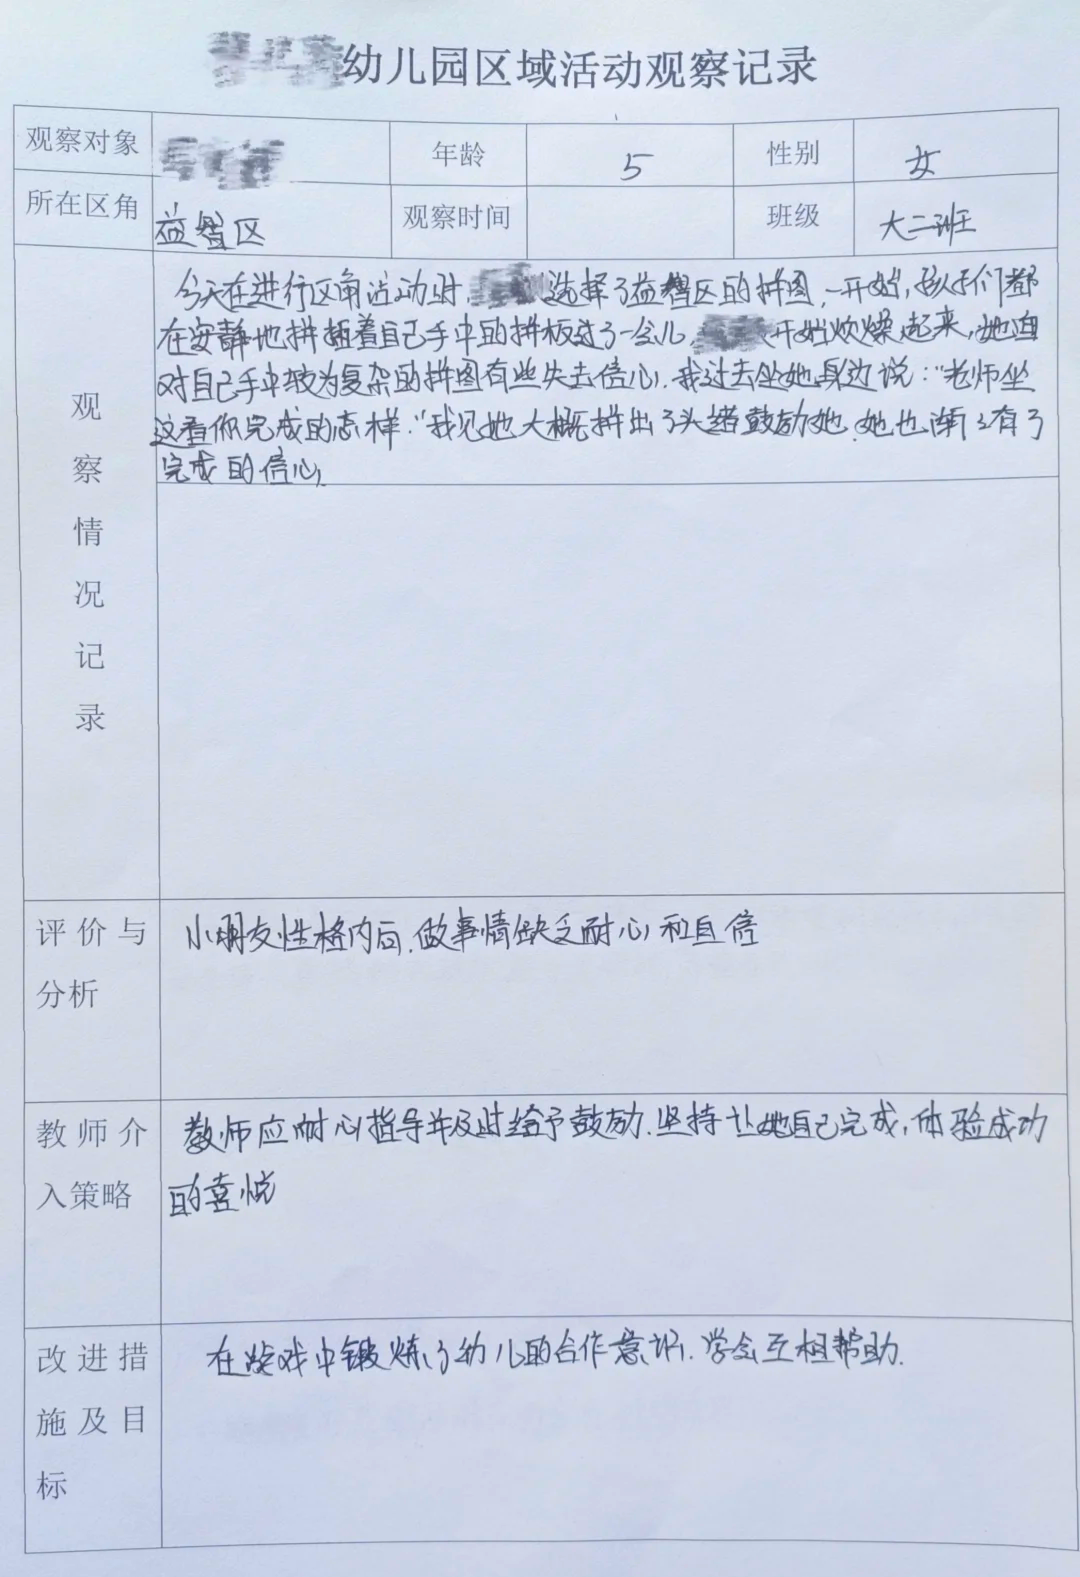 幼儿园区域活动观察记录
观察对象 年龄 5 性别 女
所在区角 益智区 观察时间 班级 大二班
观察情况记录
今天在进行区角活动时, 选择了益智区的拼图,一开始,孩子们都
在安静地拼插着自己手中的拼板过了一会儿, 开始烦燥起来,她
对自己手中较为复杂的拼图有些失去信心.我过去坐她身边说:“老师坐
这看你完成的怎样.”我见她大概拼出了头绪鼓励她.她也渐渐有了
完成的信心.
评价与分析
小朋友性格内向.做事情缺乏耐心和自信
教师介入策略
教师应耐心指导并及时给予鼓励.坚持让她自己完成,体验成功
的喜悦
改进措施及目标
在游戏中锻炼了幼儿的合作意识.学会互相帮助.